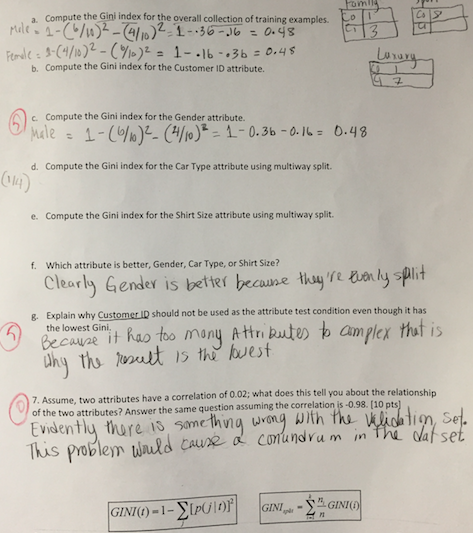 Family
Sport
C0 1
C1 3
C0 8
C1
a. Compute the Gini index for the overall collection of training examples.
Male = 1-(6/10)² - (4/10)² = 1-.36-.16 = 0.48
Female = 1-(4/10)² - (6/10)² = 1-.16-.36 = 0.48
Luxury
C0 1
C1 7
b. Compute the Gini index for the Customer ID attribute.
5
c. Compute the Gini index for the Gender attribute.
Male = 1-(6/10)² - (4/10)² = 1-0.36-0.16 = 0.48
d. Compute the Gini index for the Car Type attribute using multiway split.
(14)
e. Compute the Gini index for the Shirt Size attribute using multiway split.
f. Which attribute is better, Gender, Car Type, or Shirt Size?
Clearly Gender is better because they're evenly split
g. Explain why Customer ID should not be used as the attribute test condition even though it has
the lowest Gini.
5
Because it has too many Attributes to complex that is
why the result is the lowest
0
7. Assume, two attributes have a correlation of 0.02; what does this tell you about the relationship
of the two attributes? Answer the same question assuming the correlation is -0.98. [10 pts]
Evidently there is something wrong with the Validation Set.
This problem would cause a conundrum in the dat set
GINI(t) = 1 - ∑[p(j|t)]²
GINI split = ∑ i=1 k n_i/n GINI(i)